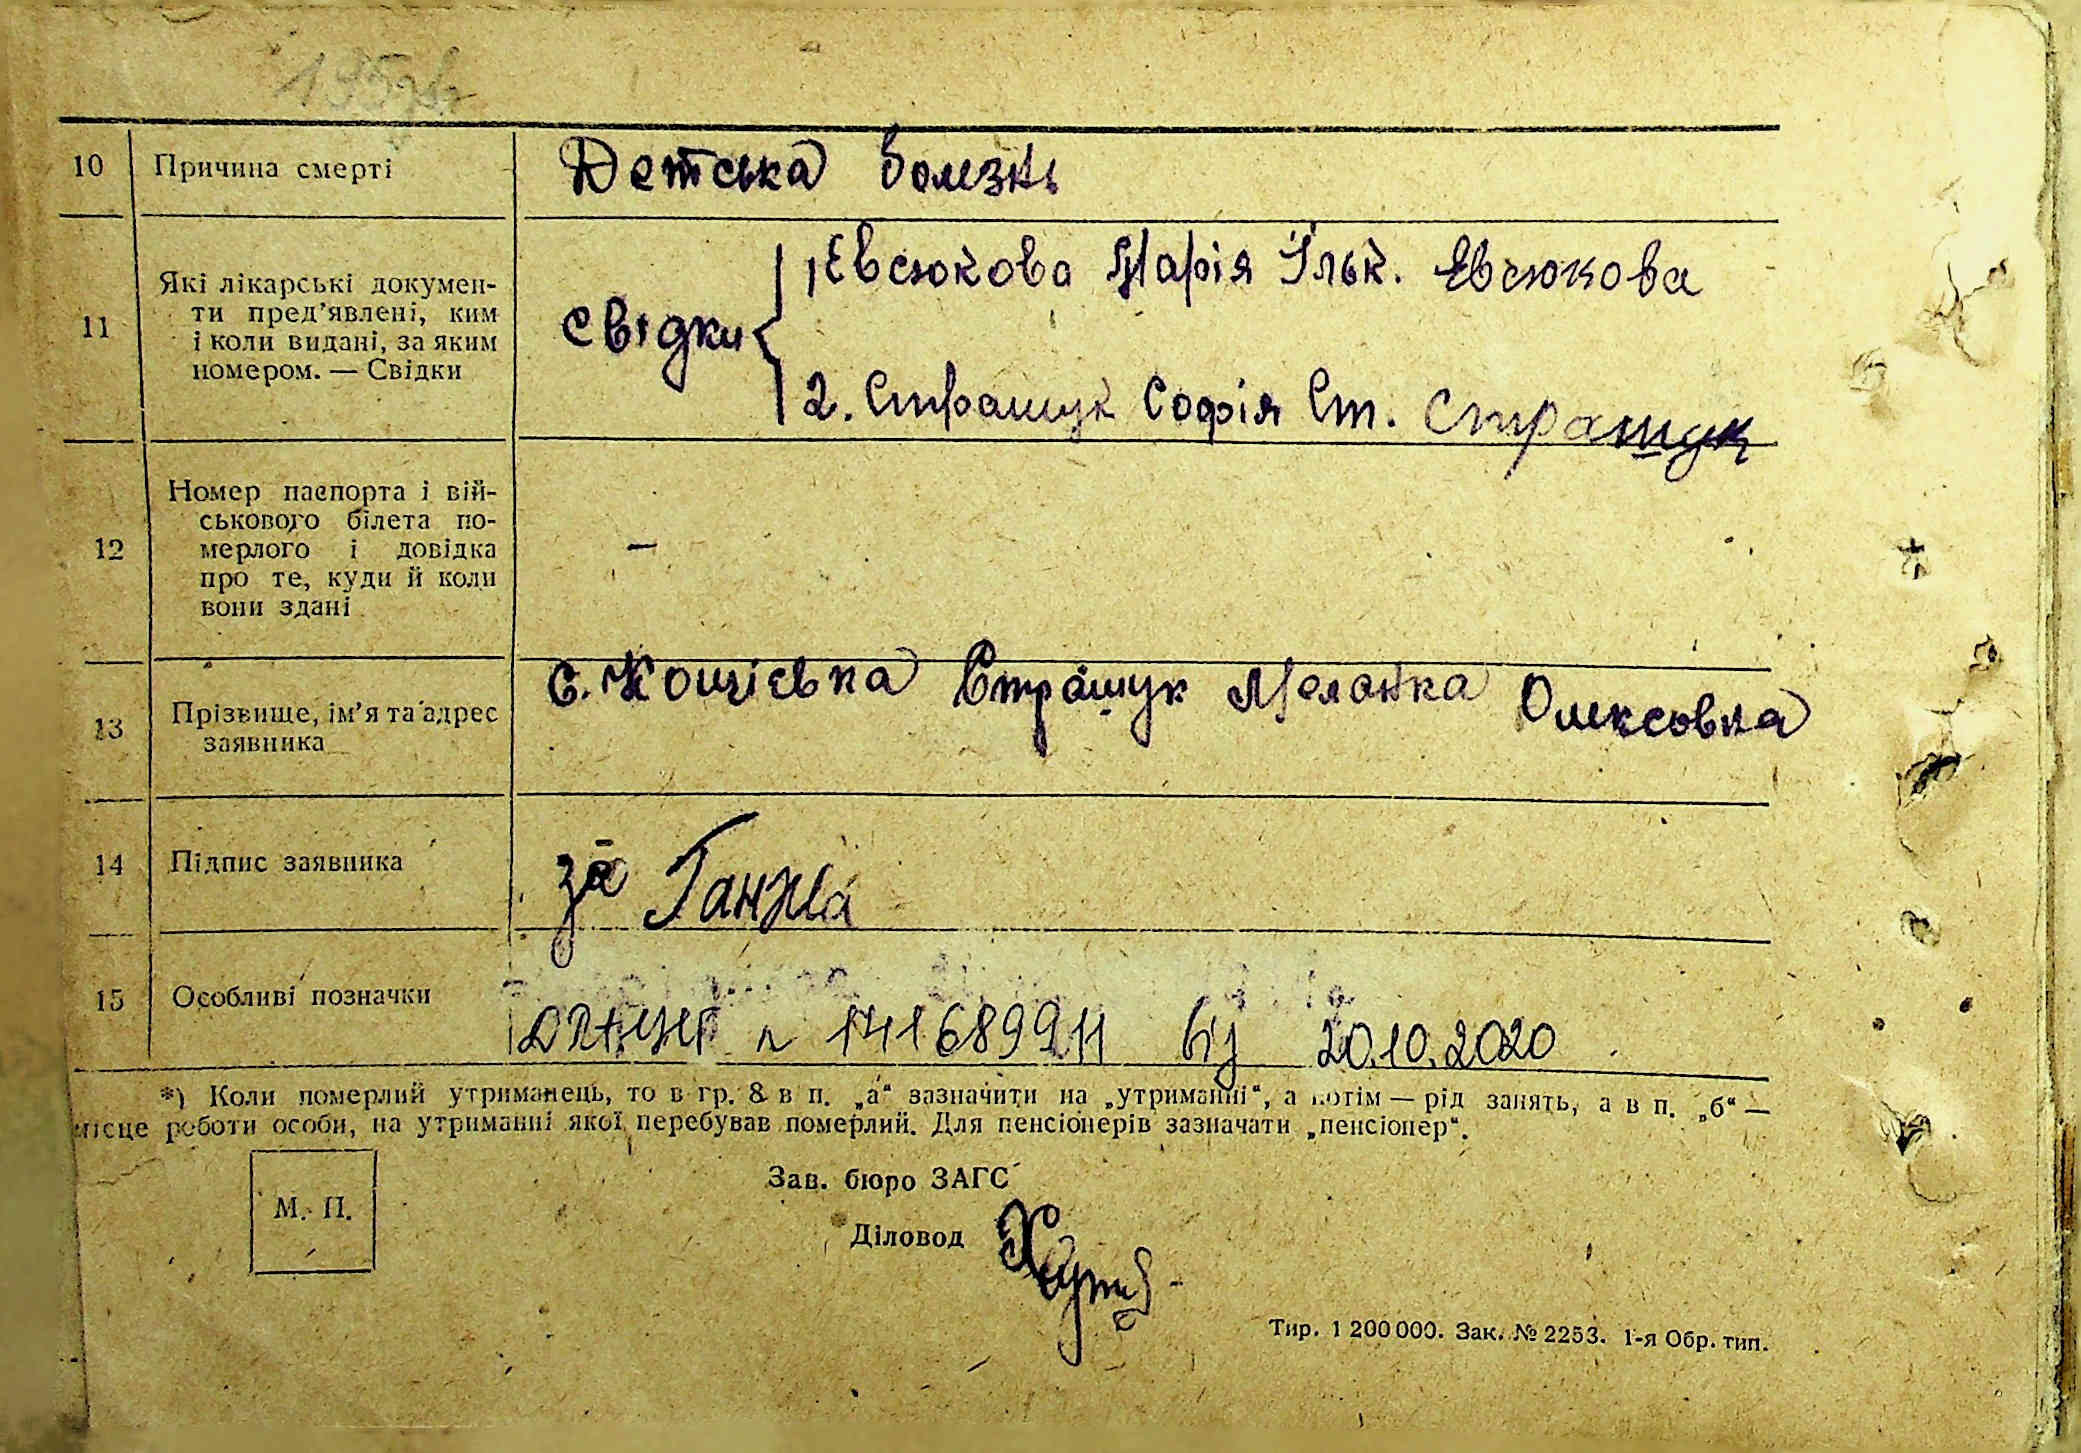 10 Причина смерті Детська болезнь
11 Які лікарські докумен-
ти пред’явлені, ким
і коли видані, за яким
номером. — Свідки
Свідки
1 Евсюкова Марія Ільк. Евсюкова
2. Стращук Софія Ст. Стращук
12 Номер паспорта і вій-
ськового білета по-
мерлого і довідка
про те, куди й коли
вони здані —
13 Прізвище, ім’я та адрес
заявника
с. Кощієвка Стращук Меланка Олексовна
14 Підпис заявника за Ганна
15 Особливі позначки
141689911 від 20.10.2020
*) Коли померлий утриманець, то в гр. 8 в п. „а“ зазначити на „утриманні“, а потім — рід занять, а в п. „б“ —
місце роботи особи, на утриманні якої перебував померлий. Для пенсіонерів зазначати „пенсіонер“.
М. П.
Зав. бюро ЗАГС
Діловод
Тир. 1 200 000. Зак. № 2253. 1-я Обр. тип.